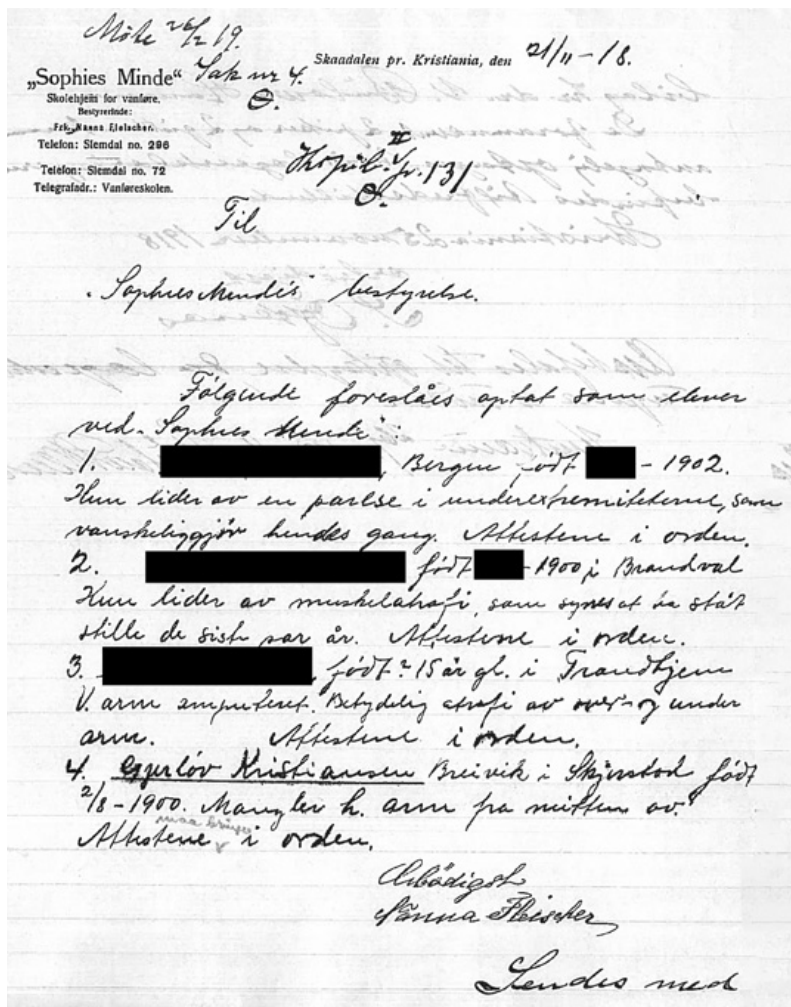 Møte 26/2 19.
Skaadalen pr. Kristiania, den 21/11 - 18.
Sak nr 4.
„Sophies Minde“
Skolehjem for vanføre.
Bestyrerinde:
Frk. Nanna Fleischer.
Telefon: Slemdal no. 296
Telefon: Slemdal no. 72
Telegrafadr.: Vanføreskolen.
131
Til
„Sophies Mindes“ bestyrelse.
Følgende foreslåes optat som elever
ved „Sophies Minde“:
1. , Bergen, født - 1902.
Hun lider av en parese i underextremiteterne, som
vanskeliggjør hendes gang. Attestene i orden.
2. født - 1900 i Brandval
Hun lider av muskelatrofi, som synes at ha ståt
stille de siste par år. Attestene i orden.
3. , født? 15 år gl. i Trondhjem
V. arm amputeret. Betydelig atrofi av over- og under
arm. Attestene i orden.
4. Gjerløv Kristiansen Breivik i Skjerstad født
2/8 - 1900. Mangler h. arm fra midten av.
maa bringes
Attestene i orden.
Ærbødigst
Nanna Fleischer
Sendes med